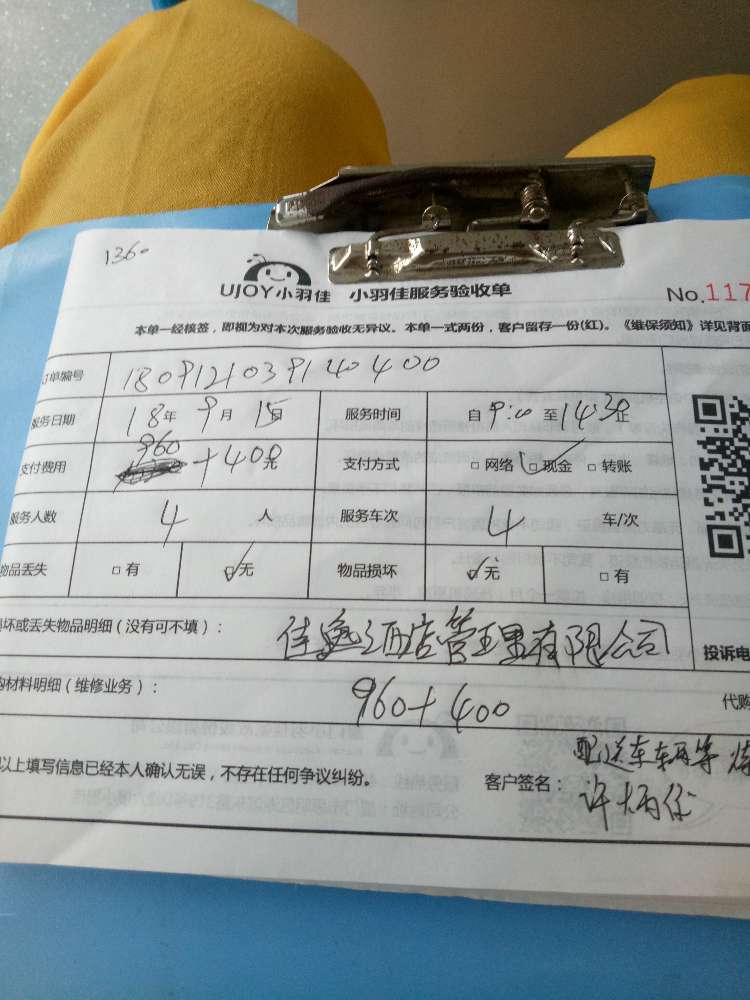 1360
UJOY小羽佳 小羽佳服务验收单 No.117
本单一经核签，即视为对本次服务验收无异议。本单一式两份，客户留存一份(红)。《维保须知》详见背面
订单编号 1809121039140400
服务日期 18年 9月 15日 服务时间 自 9:00 至 14:30 止
支付费用 960 +400元 支付方式 □网络 □现金 □转账
服务人数 4 人 服务车次 4 车/次
物品丢失 □有 □无 物品损坏 □无 □有
损坏或丢失物品明细（没有可不填）： 佳逸酒店管理有限公司 投诉电
购材料明细（维修业务）： 960+400 代购
以上填写信息已经本人确认无误，不存在任何争议纠纷。 客户签名： 配送车辆等